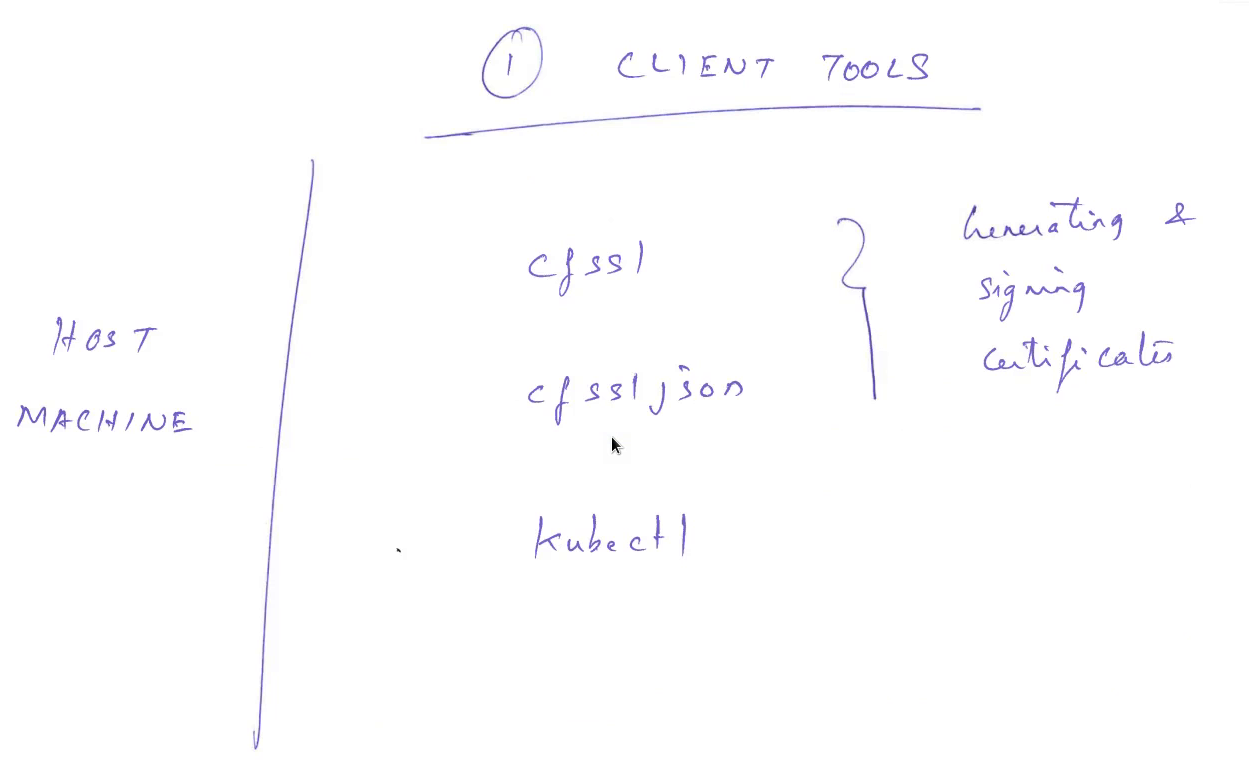 1 CLIENT TOOLS
HOST
MACHINE
cfssl
cfssljson
kubectl
Generating &
signing
certificates